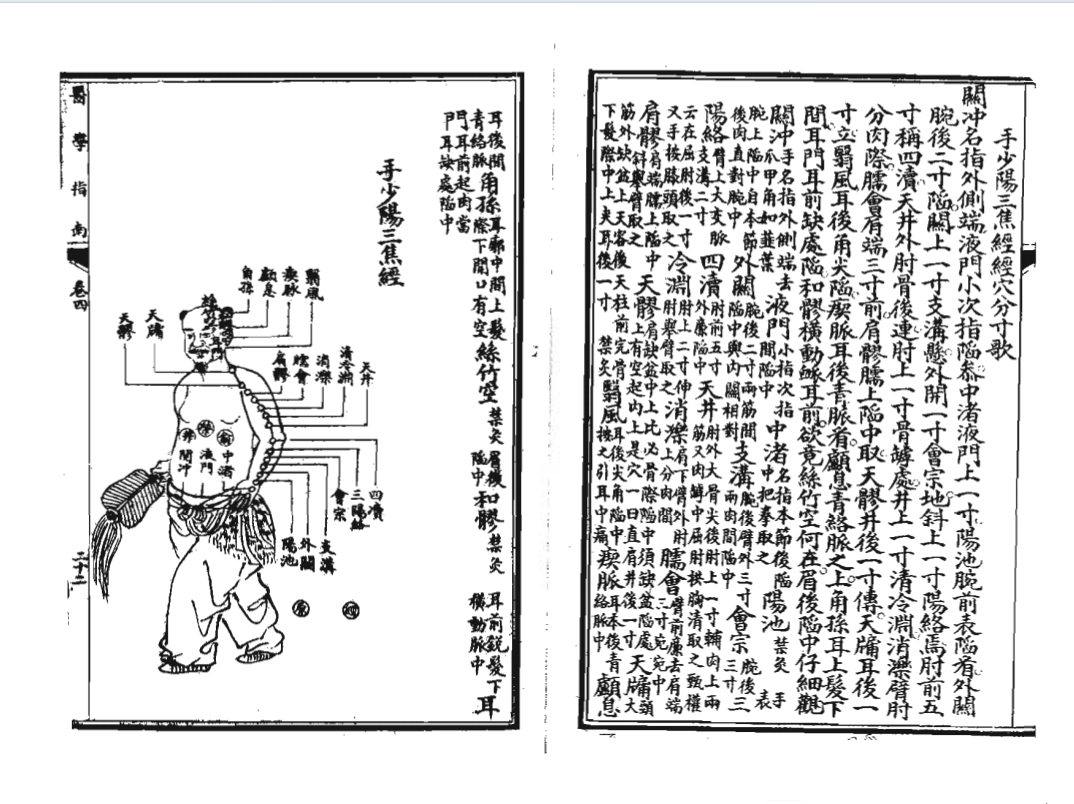 手少陽三焦經經穴分寸歌
關冲名指外側端液門小次指陷叅中渚液門上一寸陽池腕前表陷看外關
腕後二寸陷關上一寸支溝懸外開一寸會宗地斜上一寸陽絡焉肘前五
寸稱四瀆天井外肘骨後連肘上一寸骨罅處井上一寸清冷淵消濼臂肘
分肉際臑會肩端三寸前肩髎臑上陷中取天髎井後一寸傳天牖耳後一
寸立翳風耳後角尖陷瘈脈耳後青脈看顱息青絡脈之上角孫耳上髮下
間耳門耳前缺處陷和髎橫動脈耳前欲竟絲竹空何在眉後陷中仔細觀
關冲手名指外側端去爪甲角如韮葉
液門小指次指間陷中
中渚名指本節後陷中把拳取之
陽池禁灸手表
腕上陷中自本節後肉直對腕中
外關腕後二寸兩筋間陷中與內關相對
支溝腕後臂外三寸兩肉間陷中
會宗腕後三寸
陽絡臂上大交脈支溝二寸
四瀆肘前五寸外廉陷中
天井肘外大骨尖後肘上一寸輔肉上兩筋叉肉罅中屈肘拱胸清取之甄權
云在屈肘後一寸又手按膝頭取之
冷淵肘上二寸伸肘舉臂取之
消濼肩下臂外肘上分肉間
臑會臂前廉去肩端三寸宛宛中
肩髎肩端臑上陷中斜舉臂取之
天髎肩缺盆中上比必骨際陷中須缺盆陷處上有空起肉上是穴一曰直肩井後一寸
天牖頸大
筋外缺盆上天容後天柱前完骨下髮際中上夾耳後一寸
禁灸
翳風耳後尖角陷中按之引耳中痛
瘈脈耳本後青絡脈中
顱息
耳後間青絡脈
角孫耳郭中間上髮際下開口有空
絲竹空禁灸眉後陷中
和髎禁灸耳前銳髮下橫動脈中
耳
門耳前起肉當耳缺處陷中
手少陽三焦經
翳風
瘈脈
顱息
角孫
天井
清冷淵
消濼
臑會
肩髎
天牖
天髎
中渚
液門
關冲
四瀆
三陽絡
會宗
支溝
外關
陽池
醫學指南
卷四
三十二